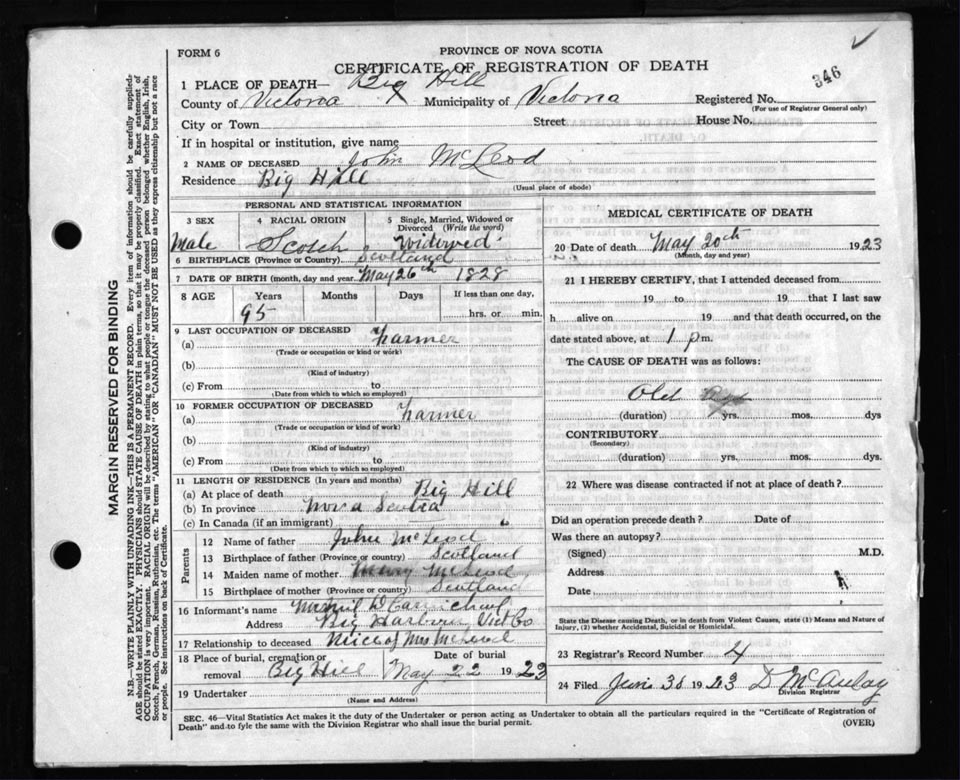 FORM 6
PROVINCE OF NOVA SCOTIA
CERTIFICATE OF REGISTRATION OF DEATH
346
1 PLACE OF DEATH— Big Hill
County of Victoria Municipality of Victoria Registered No.
(For use of Registrar General only)
City or Town Street House No.
If in hospital or institution, give name
2 NAME OF DECEASED John McLeod
Residence Big Hill
(Usual place of abode)
PERSONAL AND STATISTICAL INFORMATION
3 SEX 4 RACIAL ORIGIN 5 Single, Married, Widowed or Divorced (Write the word)
Male Scotch Widowed
6 BIRTHPLACE (Province or Country) Scotland
7 DATE OF BIRTH (month, day and year) May 26th 1828
8 AGE Years Months Days If less than one day,
95 hrs. or min.
9 LAST OCCUPATION OF DECEASED
(a) Farmer
(Trade or occupation or kind or work)
(b)
(Kind of industry)
(c) From to
(Date from which to which so employed)
10 FORMER OCCUPATION OF DECEASED
(a) Farmer
(Trade or occupation or kind of work)
(b)
(Kind of industry)
(c) From to
(Date from which to which so employed)
11 LENGTH OF RESIDENCE (In years and months)
(a) At place of death Big Hill
(b) In province Nova Scotia
(c) In Canada (if an immigrant)
Parents
12 Name of father John McLeod
13 Birthplace of father (Province or country) Scotland
14 Maiden name of mother McLeod
15 Birthplace of mother (Province or country) Scotland
16 Informant's name
Address Big Harbour Vict Co
17 Relationship to deceased Niece of Mrs McLeod
18 Place of burial, cremation or removal Date of burial
Big Hill May 22 1923
19 Undertaker
(Name and Address)
MEDICAL CERTIFICATE OF DEATH
20 Date of death May 20th 1923
(Month, day and year)
21 I HEREBY CERTIFY, that I attended deceased from
19 to 19 that I last saw
h alive on 19 and that death occurred, on the
date stated above, at 1 p m.
The CAUSE OF DEATH was as follows:
Old age
(duration) yrs. mos. dys
CONTRIBUTORY
(Secondary)
(duration) yrs. mos. dys
22 Where was disease contracted if not at place of death?
Did an operation precede death? Date of
Was there an autopsy?
(Signed) M.D.
Address
Date
State the Disease causing Death, or in death from Violent Causes, state (1) Means and Nature of
Injury, (2) whether Accidental, Suicidal or Homicidal.
23 Registrar's Record Number 4
24 Filed June 30 1923 D McAulay
Division Registrar
SEC. 46—Vital Statistics Act makes it the duty of the Undertaker or person acting as Undertaker to obtain all the particulars required in the "Certificate of Registration of
Death" and to fyle the same with the Division Registrar who shall issue the burial permit.
(OVER)
MARGIN RESERVED FOR BINDING
N.B.—WRITE PLAINLY WITH UNFADING INK—THIS IS A PERMANENT RECORD. Every item of information should be carefully supplied—
AGE should be stated EXACTLY. PHYSICIANS should STATE CAUSE OF DEATH in plain terms, so that it may be properly classified. Exact statement of
OCCUPATION is very important. RACIAL ORIGIN will be described by stating to what people or tongue the deceased person belonged whether English, Irish,
Scotch, French, German, Russian, Ruthenian, etc. The terms "AMERICAN" OR "CANADIAN" MUST NOT BE USED as they express citizenship but not a race
or people. See instructions on back of Certificate.